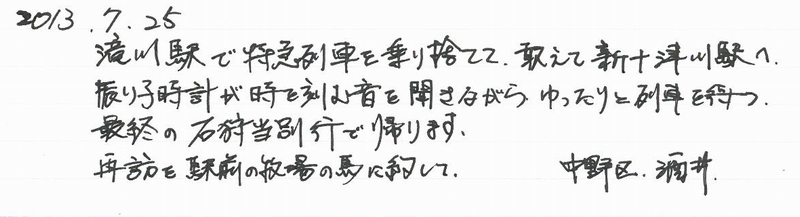 2013.7.25
滝川駅で特急列車を乗り捨てて、敢えて新十津川駅へ。
振り子時計が時を刻む音を聞きながら、ゆったりと列車を待つ。
最終の石狩当別行で帰ります。
再訪を駅前の牧場の馬に約して。 中野区. 酒井.